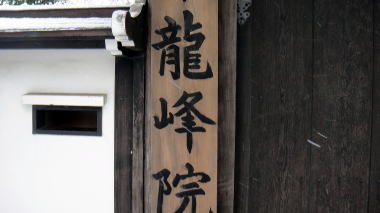 龍峰院